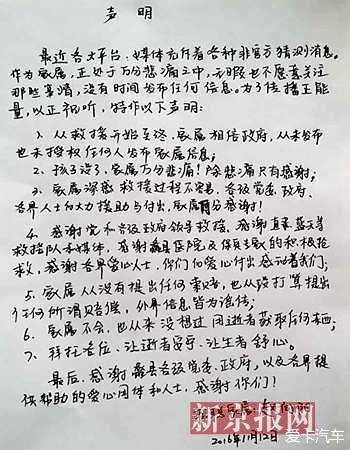 声 明
最近各大平台、媒体充斥着各种非官方猜测消息。
作为家属，正处于万分悲痛之中，无暇也不愿意关注
那些事情，没有时间发布任何信息。为了传播正能
量，以正视听，特作以下声明：
1、从救援开始至终，家属相信政府，从未发布
也未授权任何人发布家属信息；
2、孩子没了，家属万分悲痛！除悲痛只有感谢！
3、家属深感救援过程不容易，各级党委、政府、
各界人士的大力援助与付出，家属万分感谢！
4、感谢党和各级政府领导救援，感谢蓝天等
救援队和媒体，感谢蠡县医院及保定的积极抢
救，感谢各界爱心人士，你们的爱心付出感动着我们；
5、家属从没有提出任何要求，也从没打算提出
任何所谓赔偿，外界信息皆为谣传；
6、家属不会，也从来没想过因逝者获取任何东西；
7、拜托各位，让逝者安宁，让生者舒心。
最后，感谢蠡县各级党委、政府，以及各界提
供帮助的爱心团体和人士，感谢你们！
2016年11月12日
新京报网
爱卡汽车